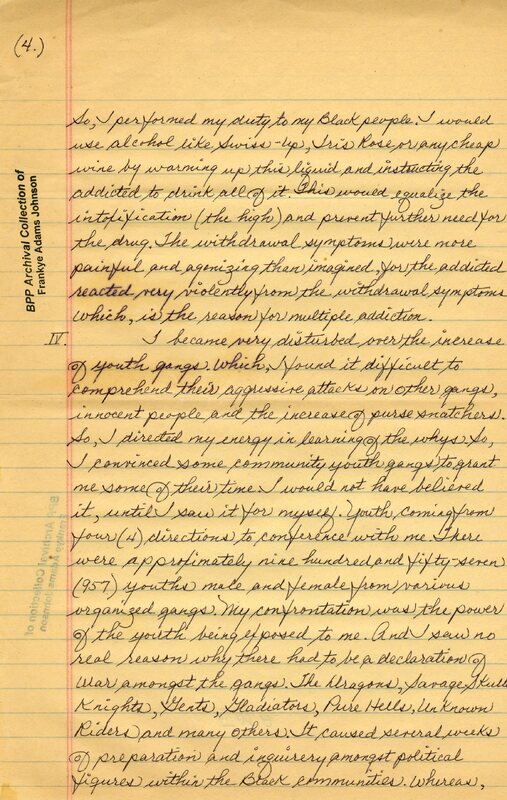 (4.)
BPP Archival Collection of
Frankye Adams Johnson
So, I performed my duty to my Black people. I would
use alcohol like Swiss-Up, Iris Rose or any cheap
wine by warming up this liquid and instucting the
addicted to drink all of it. This would equalize the
intoxification (the high) and prevent further need for
the drug. The withdrawal symptoms were more
painful and agonizing than imagined, for the addicted
reacted very violently from the withdrawal symptoms
which, is the reason for multiple addiction.
IV. I became very disturbed over the increase
of youth gangs. Which, I found it difficult to
comprehend their aggressive attacks on other gangs,
innocent people and the increase of purse snatchers.
So, I directed my energy in learning of the whys. So,
I convinced some community youth gangs to grant
me some of their time. I would not have believed
it, until I saw it for myself. Youth, coming from
four (4) directions to conference with me. There
were approximately nine hundred and fifty-seven
(957) youths male and female from various
organized gangs. My confrontation was the power
of the youth being exposed to me. And I saw no
real reason why there had to be a declaration of
War amongst the gangs. The Dragons, Savage Skulls
Knights, Gents, Gladiators, Pure Hells, Unknown
Riders and many others. It caused several weeks
of preparation and inquirery amongst political
figures within the Black communities. Whereas,
BPP Archival Collection of
Frankye Adams Johnson